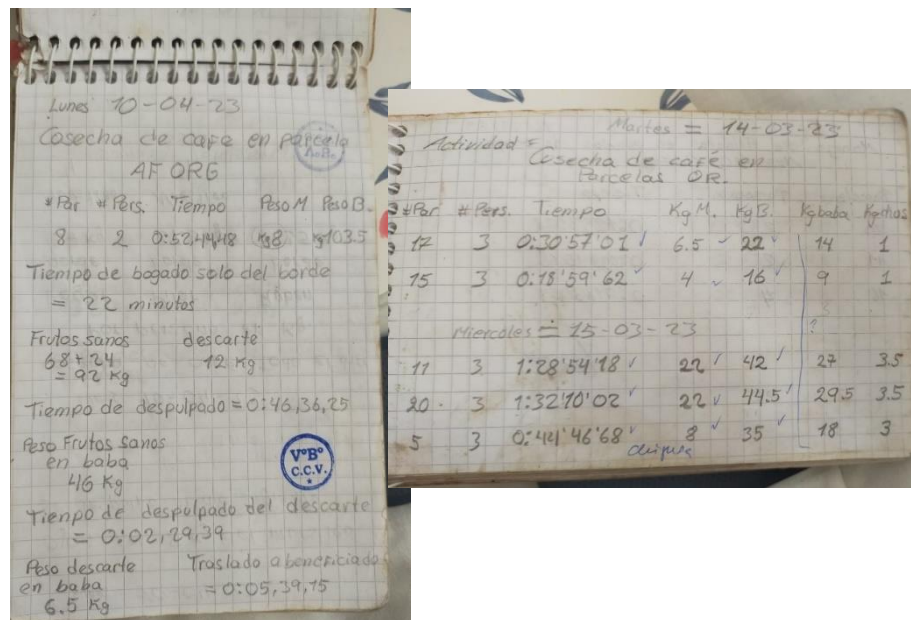 Lunes 10-04-23
Cosecha de cafe en parcela
AF ORG
#Par #Pers. Tiempo Peso M Peso B.
8 2 0:52,44,48 kg8 kg103.5
Tiempo de bogado solo del borde
= 22 minutos
Frutos sanos descarte
68+24 12 Kg
= 92 Kg
Tiempo de despulpado = 0:46,36,25
Peso Frutos Sanos
en baba
46 Kg
V°B°
C.C.V.
Tienpo de despulpado del descarte
= 0:02,29,39
Peso descarte Traslado a beneficiado
en baba = 0:05,39,15
6.5 Kg
Martes = 14-03-23
Actividad =
Cosecha de café en
Parcelas OR.
#Par # Pers. Tiempo Kg M. Kg B. Kg baba
12 3 0:30'57'01 6.5 22 14 1
15 3 0:18'59'62 4 16 9 1
Miercoles = 15-03-23 ?
11 3 1:28'54'18 22 42 27 3.5
20 3 1:32'10'02 22 44.5 29.5 3.5
5 3 0:44'46'68 8 35 18 3